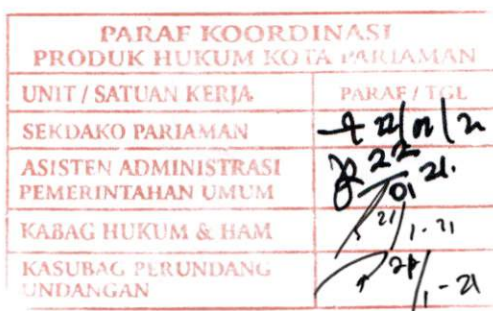 PARAF KOORDINASI
PRODUK HUKUM KOTA PARIAMAN
UNIT / SATUAN KERJA PARAF / TGL
SEKDAKO PARIAMAN 22/01/21
ASISTEN ADMINISTRASI
PEMERINTAHAN UMUM 22/01 21.
KABAG HUKUM & HAM 21/1-21
KASUBAG PERUNDANG
UNDANGAN /1-21